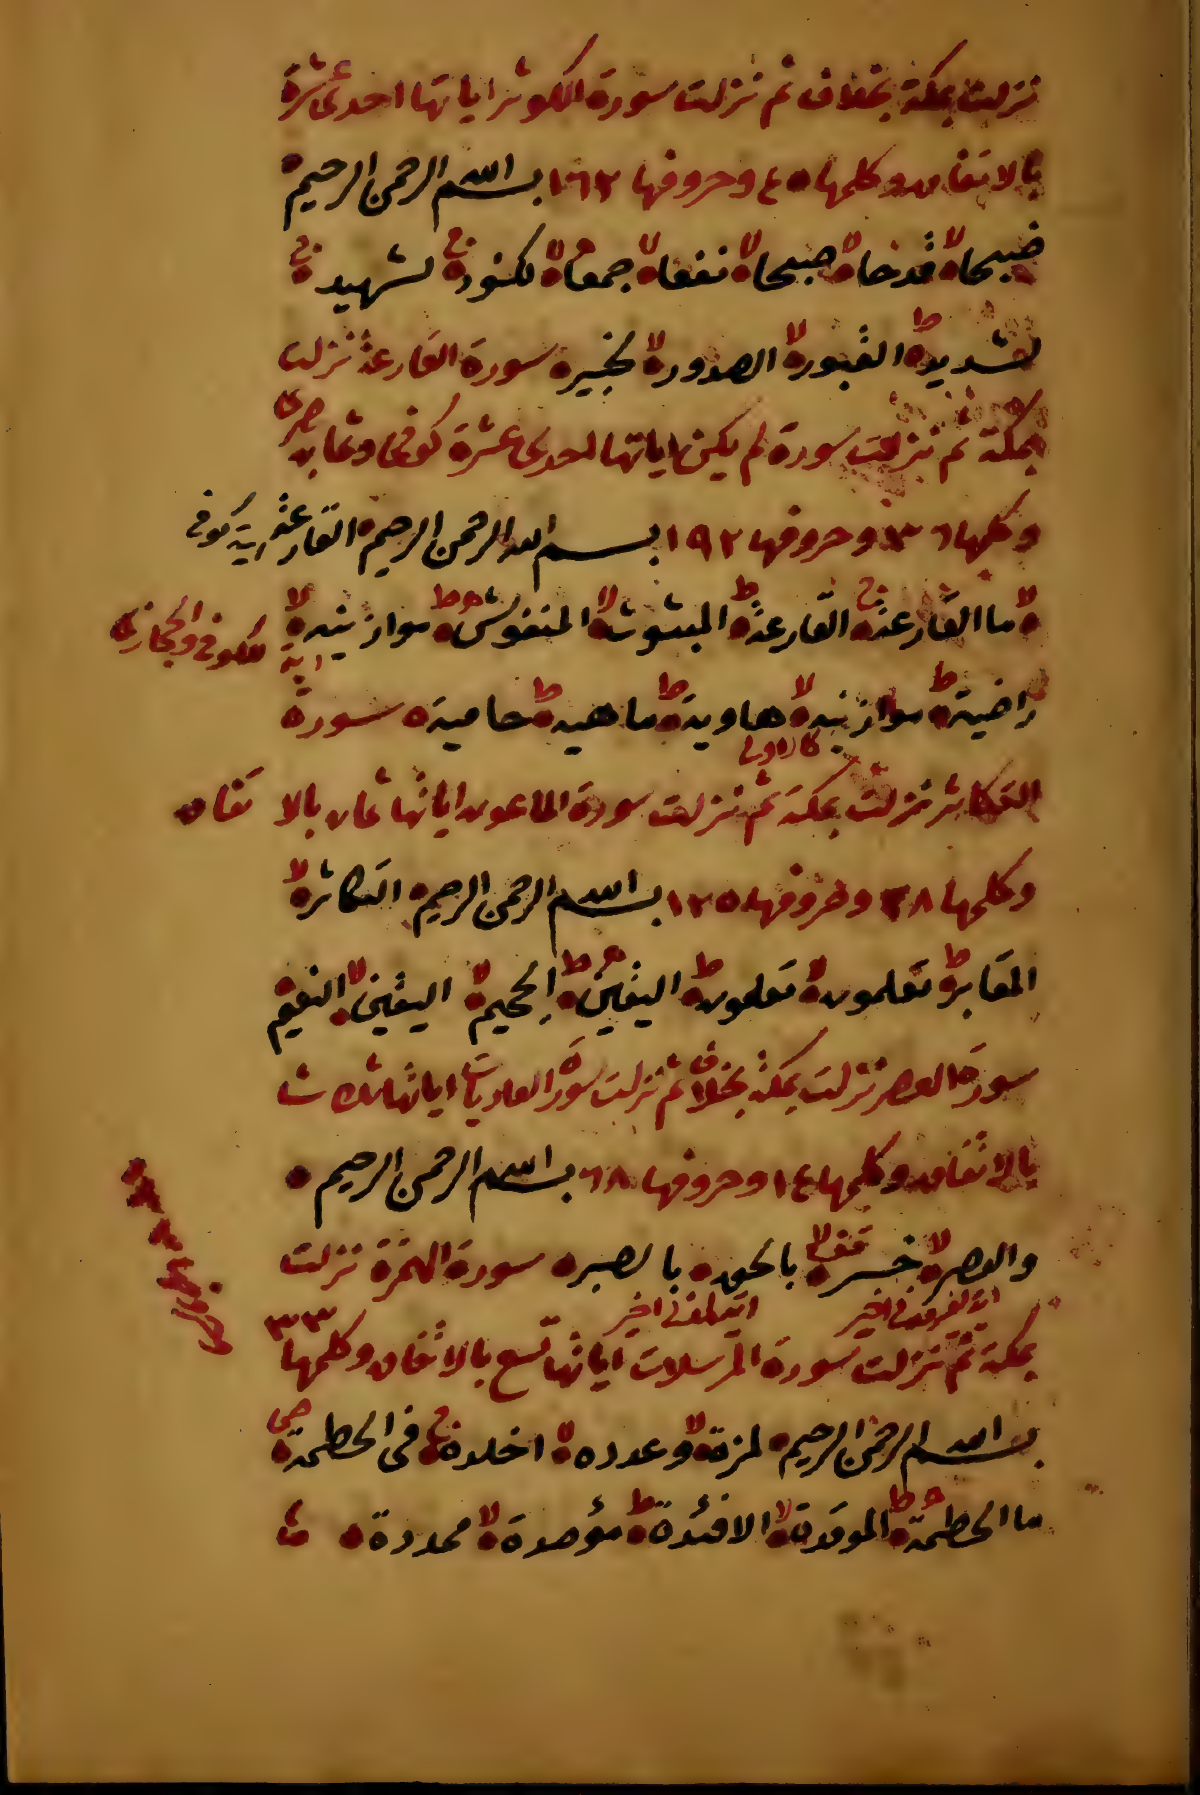 نزلت بمكة بخلاف ثم نزلت سورة الكوثر اياتها احدى عشرة
بالاتفاق وكلمها ٤٠ وحروفها ١٦٢ بسم الله الرحمن الرحيم
ضبحا ۙ قدحا ۙ صبحا ۙ نقعا ۙ جمعا ۙ لكنود ج لشهيد ج
لشديد ط القبور لا الصدور لا لخبير سورة القارعة نزلت
بمكة ثم نزلت سورة لم يكن اياتها احدى عشرة كوفى وثمان
وكلمها ٣٦ وحروفها ١٩٢ بسم الله الرحمن الرحيم القارعة اية كوفى
لا ما القارعة ج القارعة ط المبثوث لا المنفوش ط موازينه لا
اية للكوفى والحجازى
راضية ط موازينه لا هاوية ط ماهيه ط حامية سورة
التكاثر نزلت بمكة ثم نزلت سورة الماعون اياتها ثمان بالاتفاق
كالاولى
وكلمها ٢٨ وحروفها ١٢٥ بسم الله الرحمن الرحيم التكاثر لا
المقابر ط تعلمون لا تعلمون ط اليقين ط الجحيم لا اليقين لا النعيم
سورة العصر نزلت بمكة بخلاف ثم نزلت سورة العاديات اياتها ثلاث
بالاتفاق وكلمها ١٤ وحروفها ٦٨ بسم الله الرحمن الرحيم
والعصر لا خسر لا بالحق بالصبر سورة الهمزة نزلت
بمكة ثم نزلت سورة المرسلات اياتها تسع بالاتفاق وكلمها ٣٣
بسم الله الرحمن الرحيم لمزة لا وعدده لا اخلده ج فى الحطمة
ما الحطمة ط الموقدة لا الافئدة ط مؤصدة لا ممددة